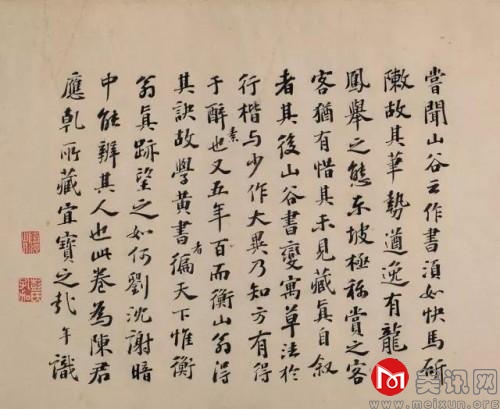 嘗聞山谷云作書須如快馬斫
敶故其筆勢遒逸有龍
鳳舉之態東坡極稱賞之客
客猶有惜其未見藏真自敘
者其後山谷書變寓草法於
行楷与少作大異乃知方有得
于醉素也又五年百而衡山翁得
其訣故學黃書者徧天下惟衡
翁真跡望之如何劉沈謝暗
中能辨其人也此卷為陳君
應乾所藏宜寶之哉年識
美讯网
www.meixun.org